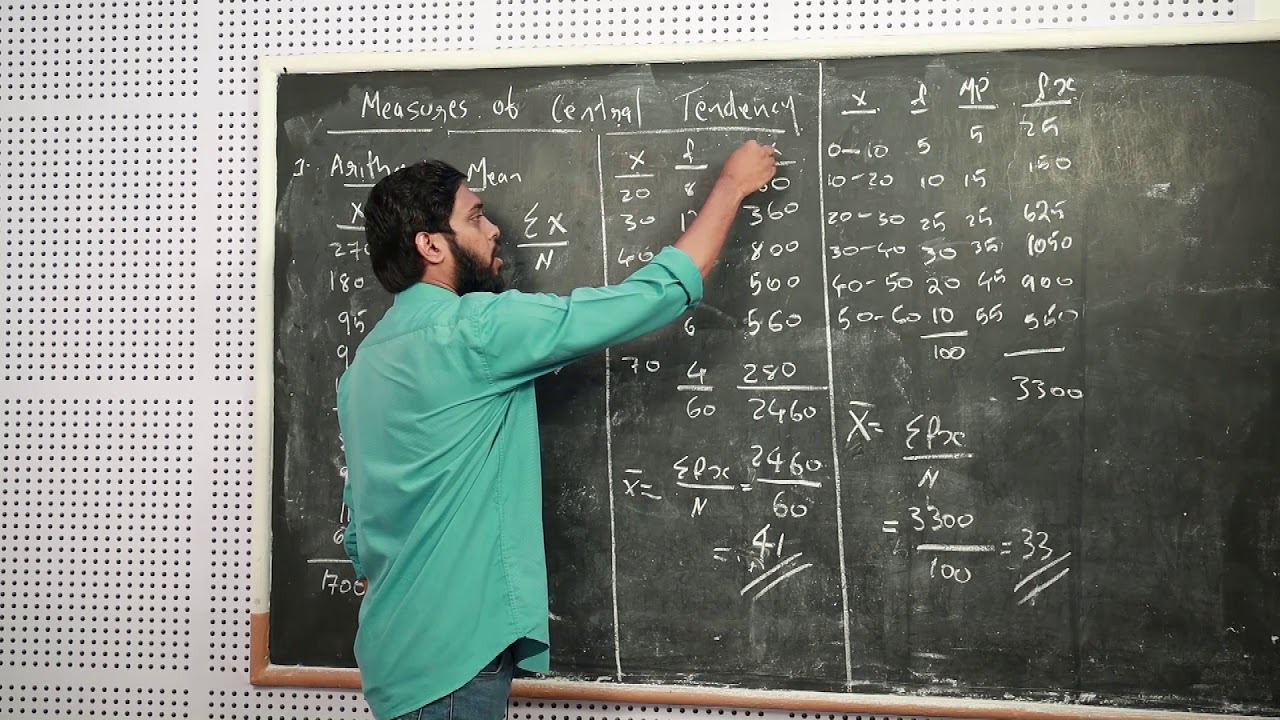 Measures of Central Tendency
1. Mean
X
270
180
95
9
6
1700
Σx
N
X f
20 8
30 360
40 800
500
6 560
70 4 280
60 2460
x̄ = Σfx / N = 2460 / 60
= 41
X f MP fx
0-10 5 5 25
10-20 10 15 150
20-30 25 25 625
30-40 30 35 1050
40-50 20 45 900
50-60 10 55 550
100
3300
X̄ = Σfx / N
= 3300 / 100 = 33